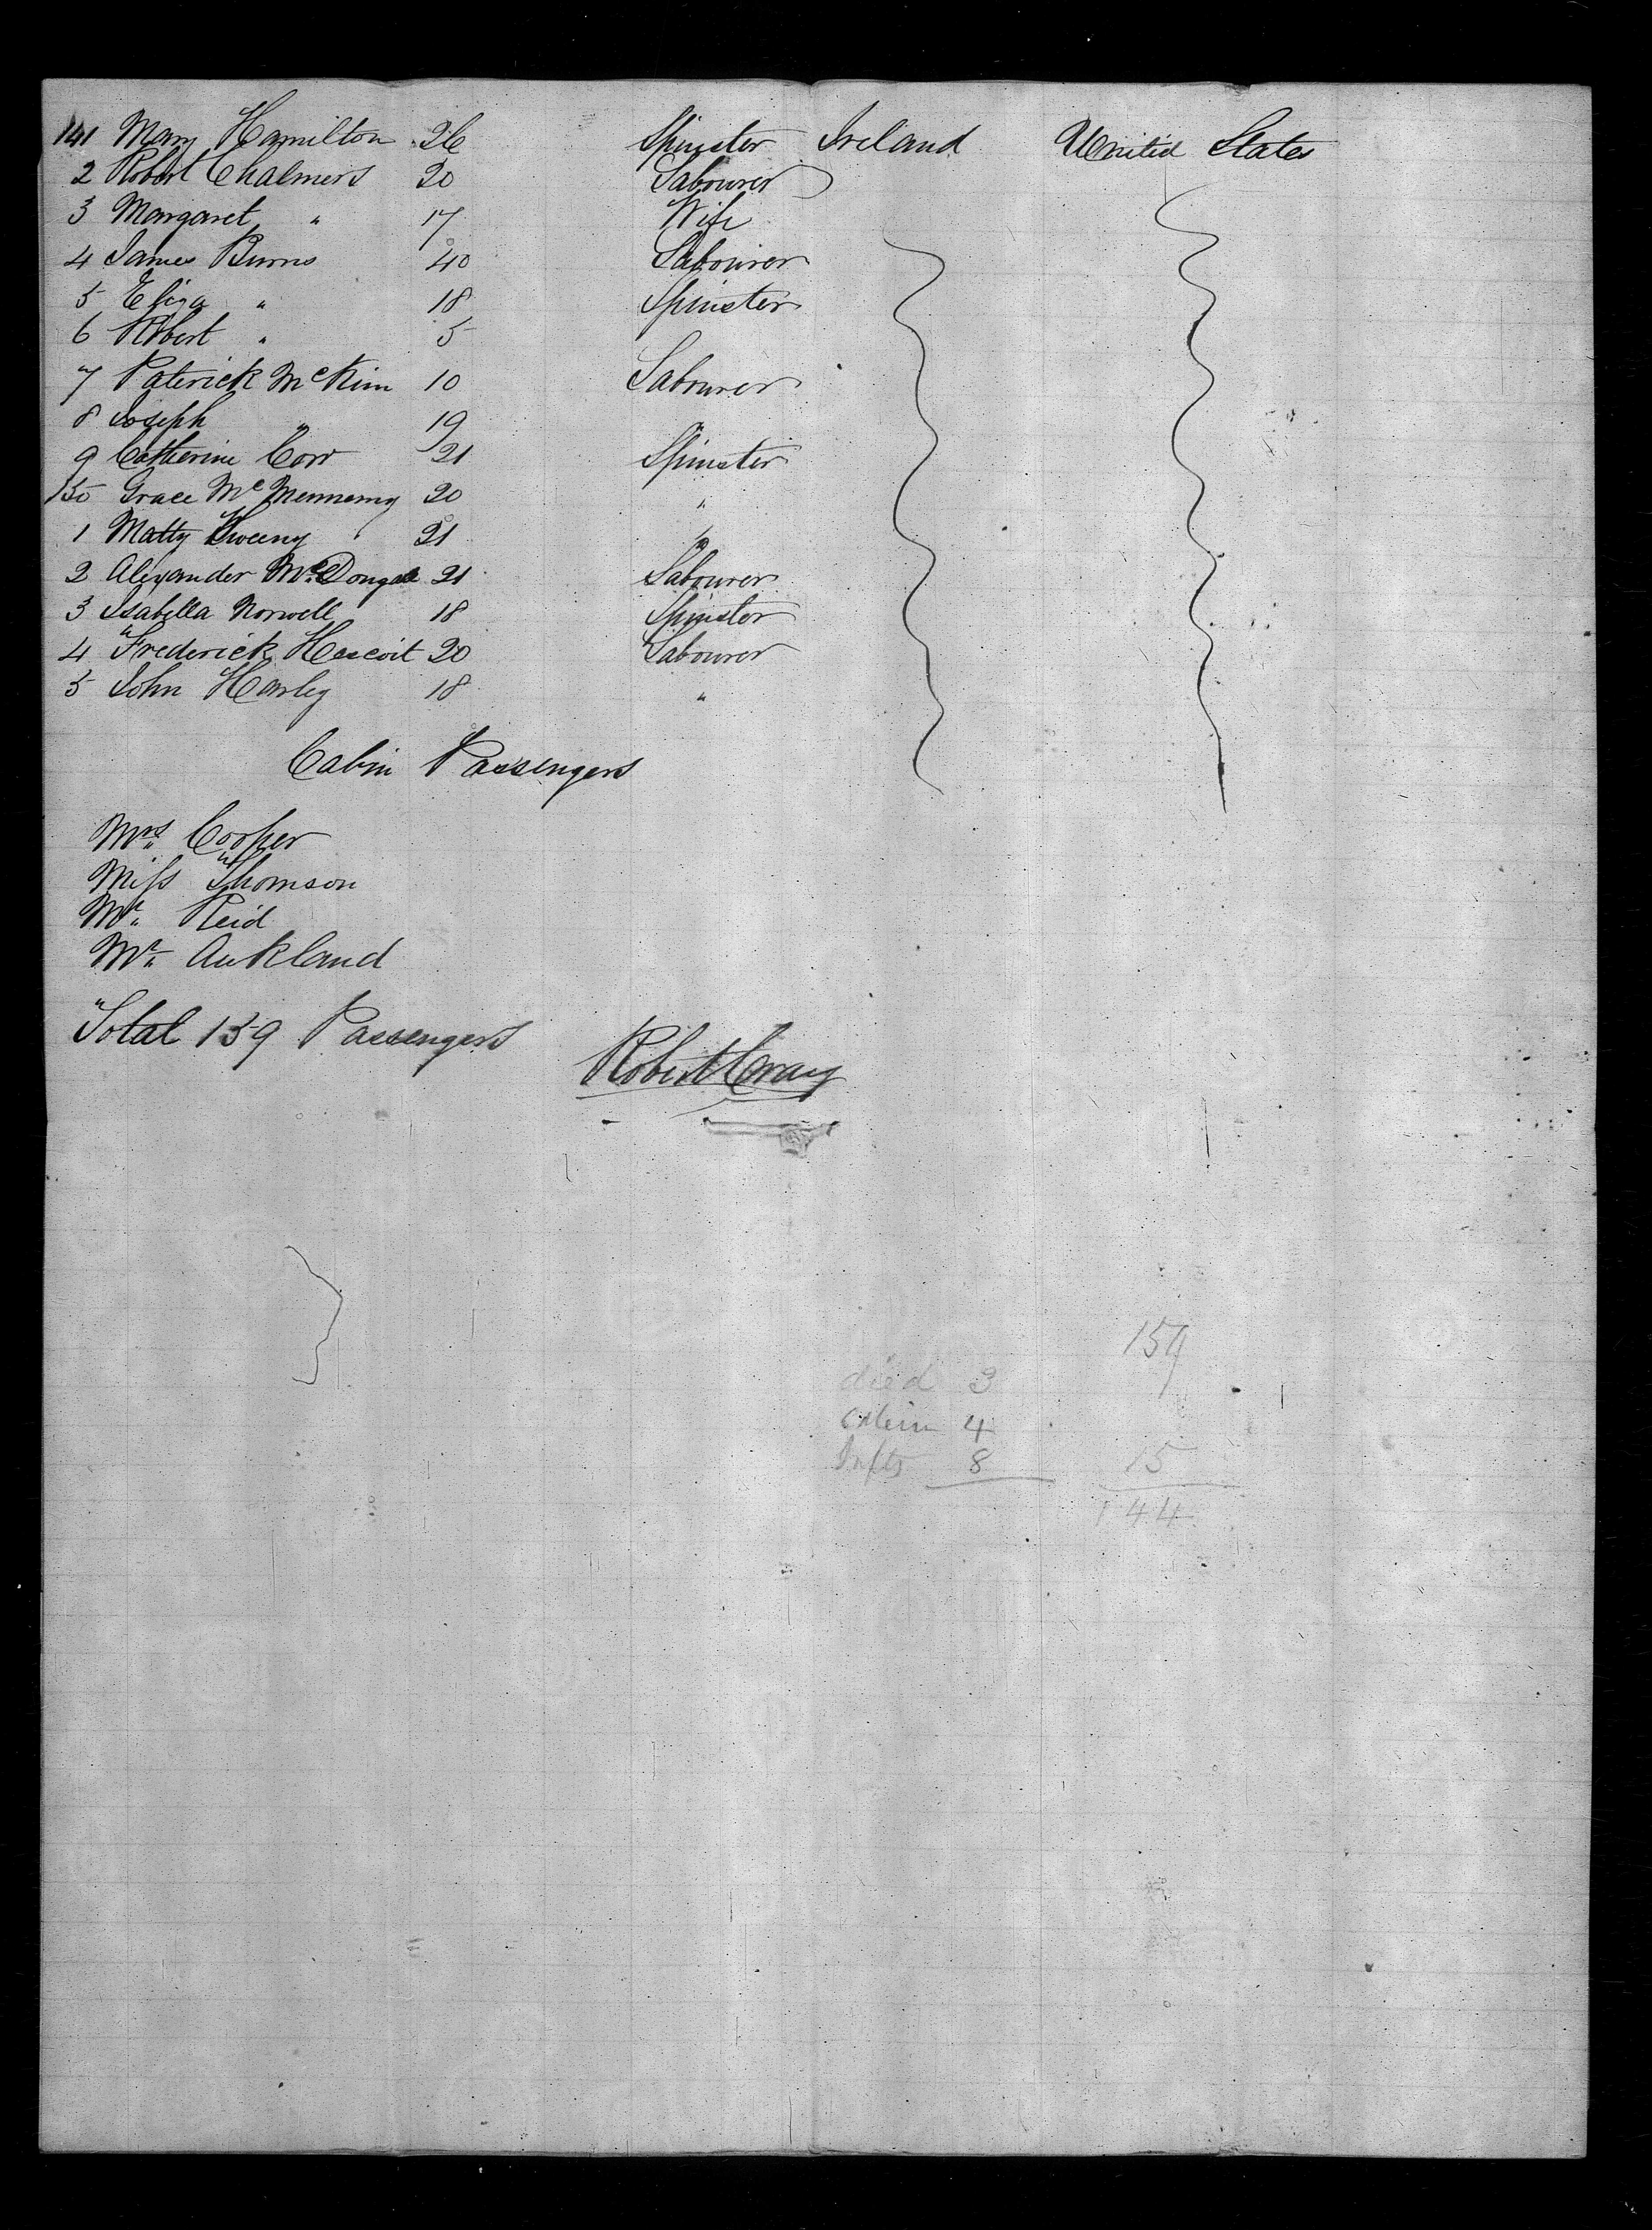 141 Mary Hamilton 26 Spinster Ireland United States
2 Robert Chalmers 20 Labourer
3 Margaret " 17 Wife
4 James Burns 40 Labourer
5 Eliza " 18 Spinster
6 Robert " 5
7 Paterick McKim 10 Labourer
8 Joseph " 19
9 Catherine Corr 21 Spinster
150 Grace McMennamy 20 "
1 Matty Sweeny 21 "
2 Alexander McDougall 21 Labourer
3 Isabella Norwell 18 Spinster
4 Frederick 20 Labourer
5 John Harley 18 "
Cabin Passengers
Mrs Cooper
Miss Thomson
Mr Reid
Mr Aukland
Total 159 Passengers
Robert Craig
159
died 3
Cabin 4
Infts 8 15
144